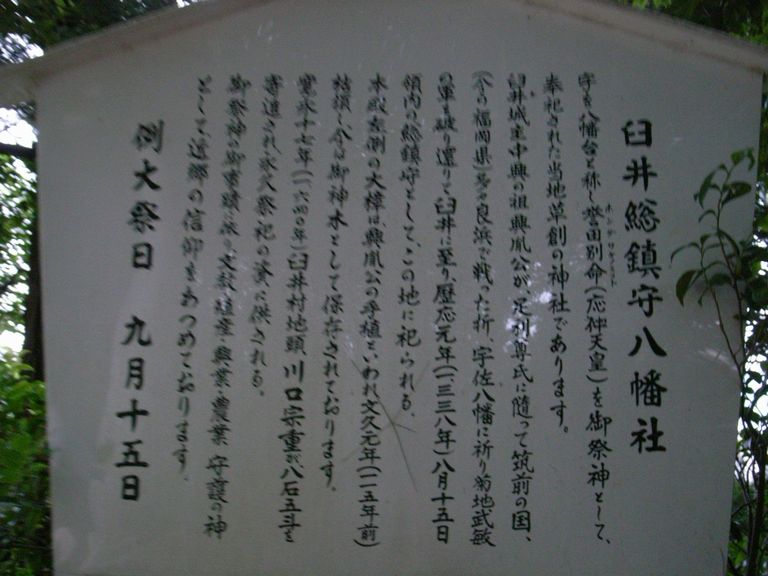 臼井総鎮守八幡社
字を八幡台と称し誉田別命(応神天皇)を御祭神として、
ホンダワケミコト
奉祀された当地草創の神社であります。
臼井城主中興の祖興胤公が、足利尊氏に随って筑前の国、
(今の福岡県)多々良浜で戦った折、宇佐八幡に祈り菊地武敏
の軍を破り還りて臼井に至り歴応元年(一三三八年)八月十五日
領内の総鎮守として、この地に祀られる、
本殿左側の大樟は興胤公の手植といわれ文久元年(一一五年前)
枯損し今は御神木として保存されております。
寛永十七年(一六四〇年)臼井村地頭川口宗重が八石五斗を
寄進され永久祭祀の資に供される。
御祭神の御事蹟に依り文教・殖産・興業・農業守護の神
として近郷の信仰をあつめております。
例大祭日 九月十五日